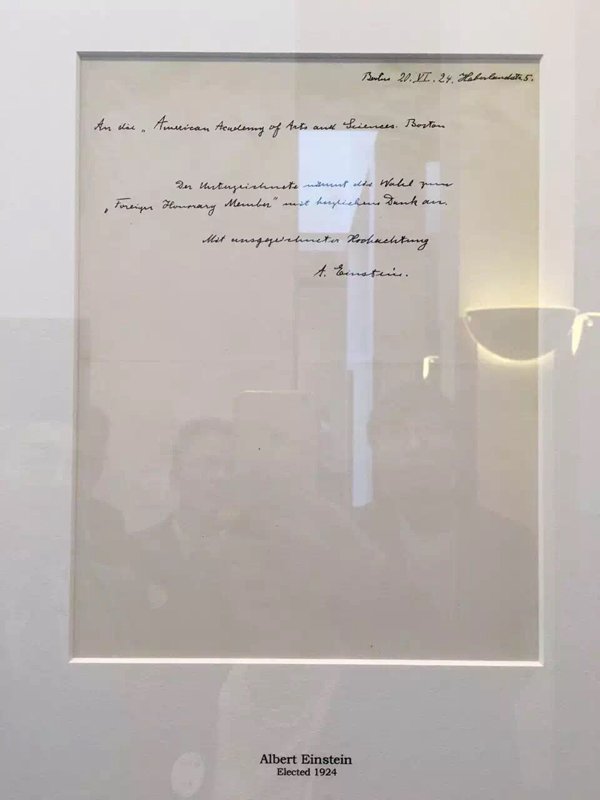 Berlin 20.VI.24. Haberlandstr. 5.
An die „American Academy of Arts and Sciences. Boston
Der Unterzeichnete nimmt die Wahl zum
„Foreign Honorary Member" mit herzlichem Dank an.
Mit ausgezeichneter Hochachtung
A. Einstein.
Albert Einstein
Elected 1924